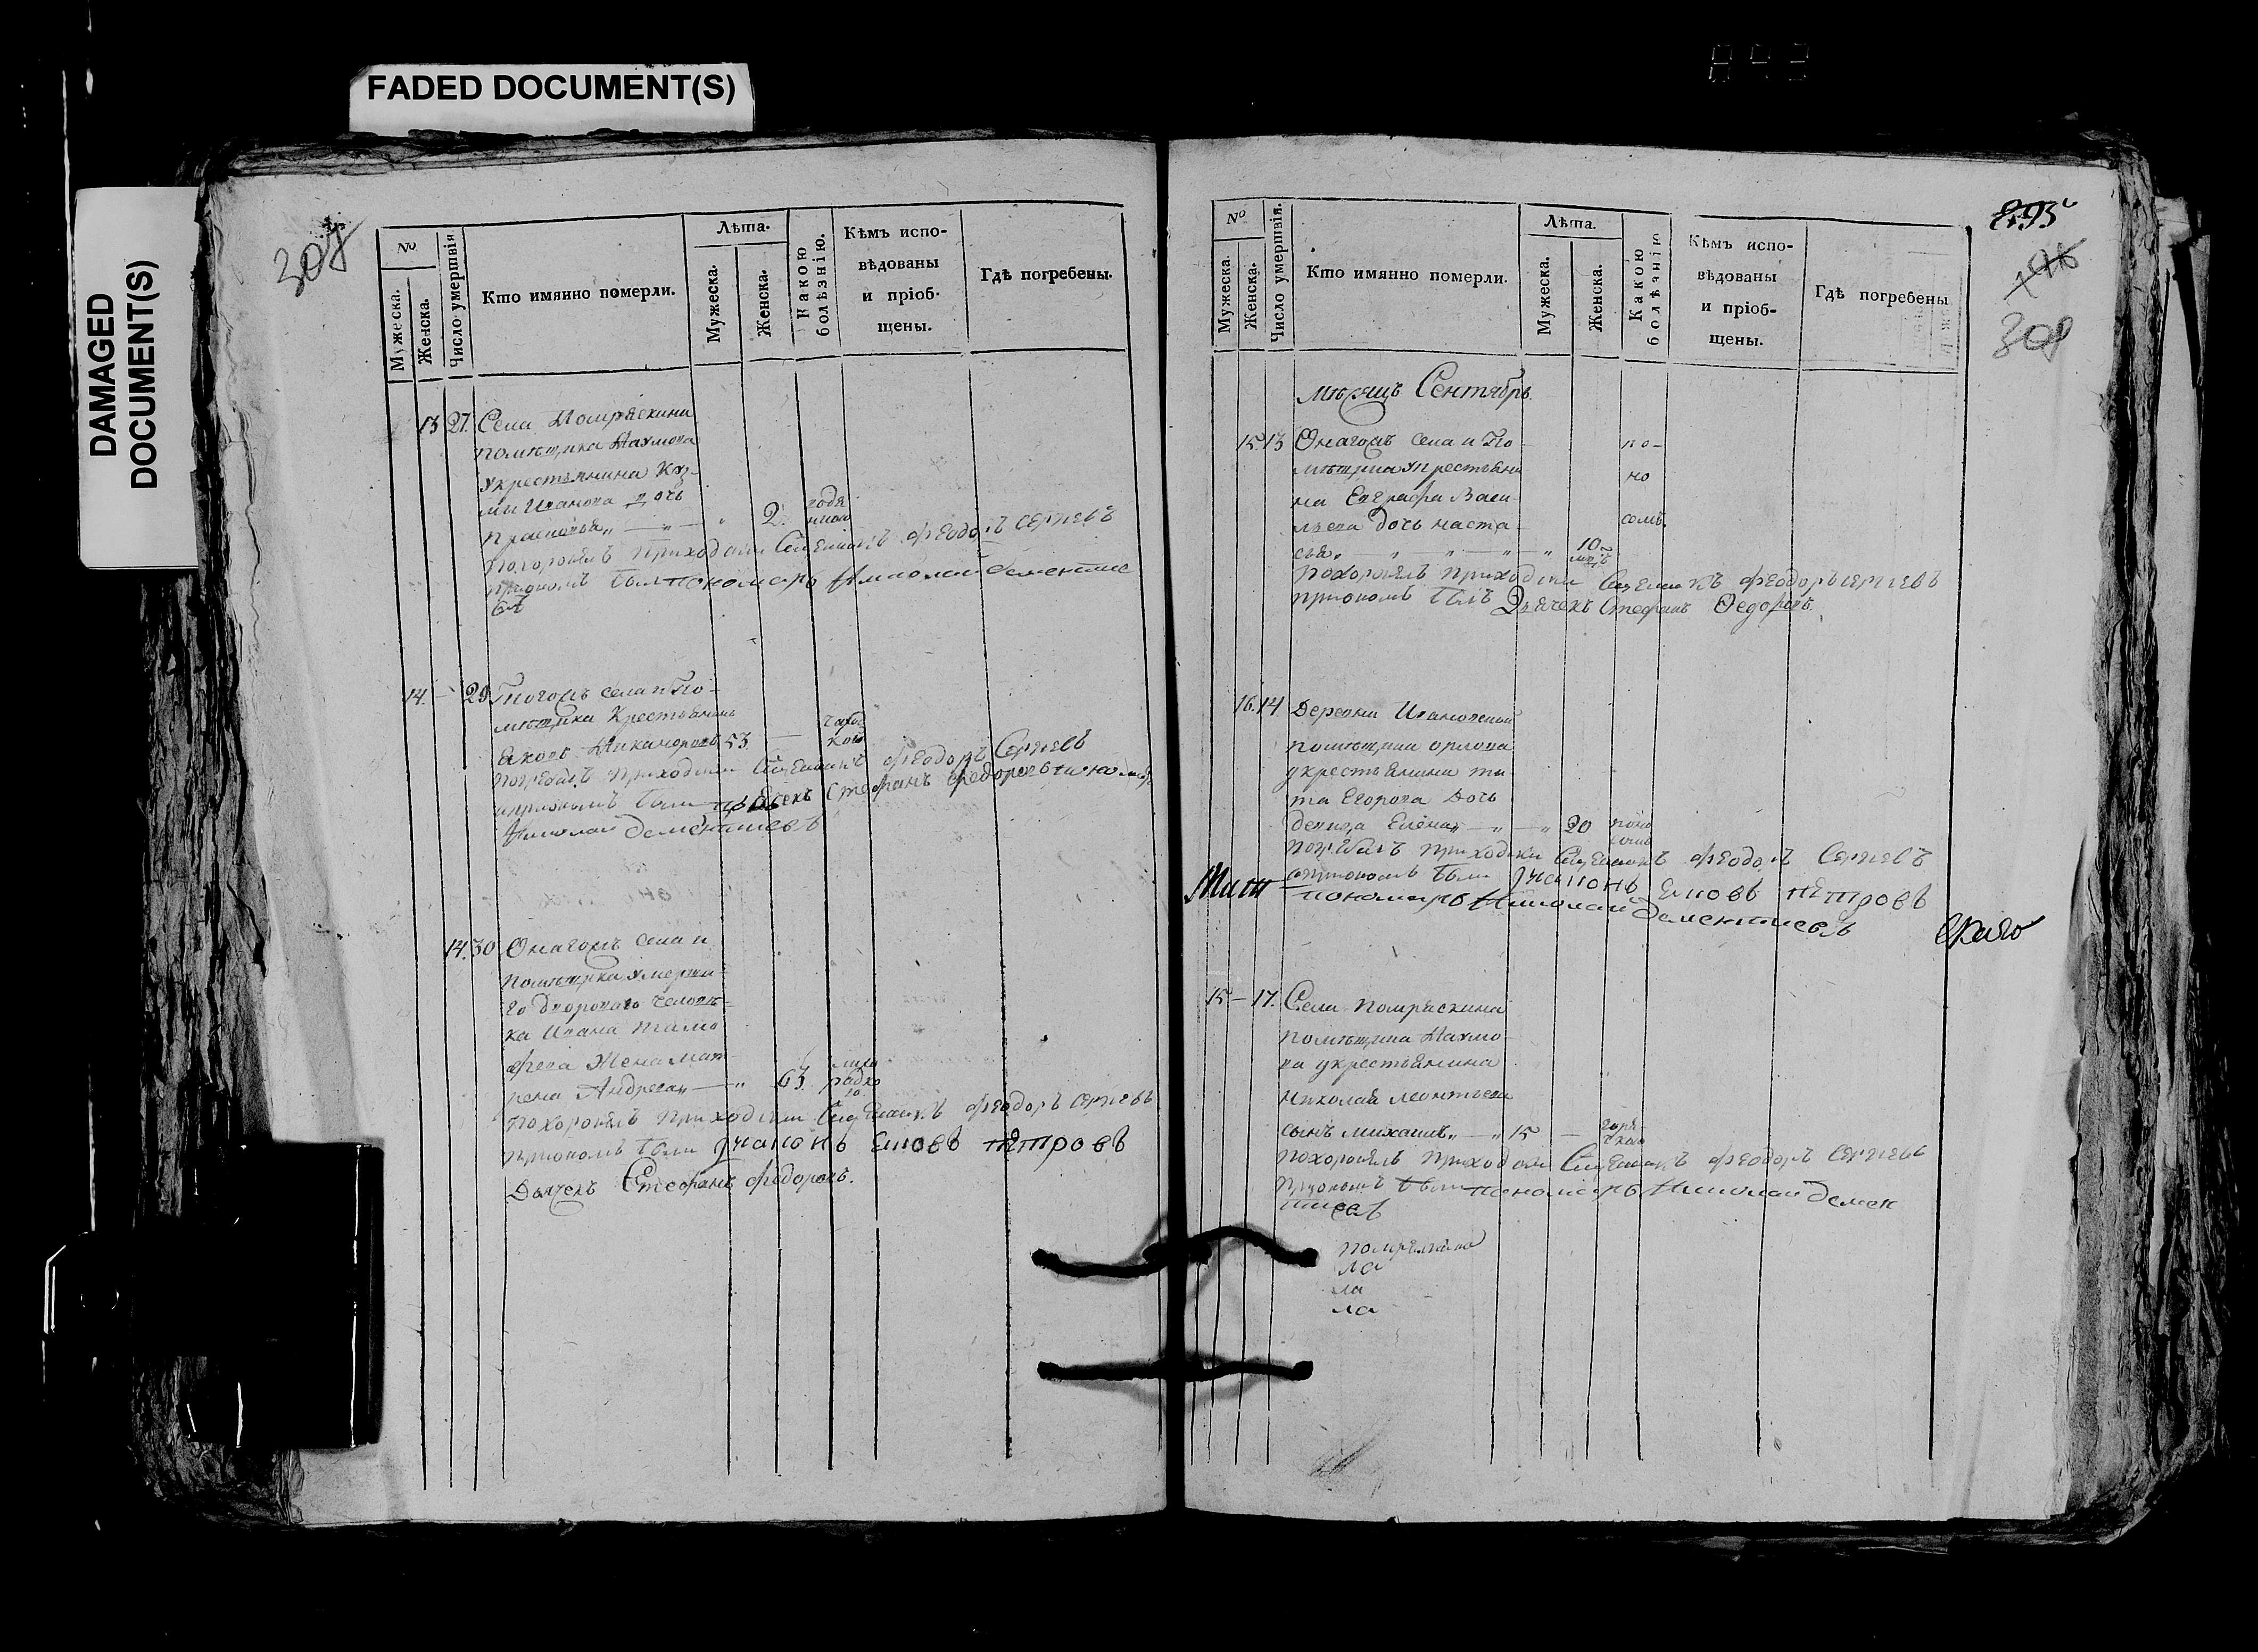 FADED DOCUMENT(S)
DAMAGED
DOCUMENT(S)
308
№
Мужеска.
Женска.
Число умертвія
Кто имянно померли.
Лѣта.
Мужеска.
Женска.
Какою
болѣзнію.
Кѣмъ испо-
вѣдованы
и пріоб-
щены.
Гдѣ погребены.
13 27. Села Помряскина
помѣщика Нахмова
укрестьянина Куз-
мы Иванова дочь
2.
похоронялъ приходски Священикъ Феодоръ Сергіевъ
притомъ былъ пономарь Николай Дементие
въ
14. — 29 Тогожъ села и По-
мѣщика Крестьянинъ
Яковъ Никаноровъ 53 —
погребалъ приходски Священикъ Феодоръ Сергіевъ
притомъ были Стефанъ Федоровъ
Николай Дементиевъ
14. 30 Онагожъ села и
помѣщика умерша-
го двороваго челове-
ка Ивана Тимо
феева Жена Мат-
рена Андреева 63. лихо
радко
ю.
похоронялъ приходски Священикъ Феодоръ Сергіевъ
притомъ были Диаконъ Ермовъ Петровъ
Дьячекъ Стефанъ Федоровъ.
843
895
308
№
Мужеска.
Женска.
Число умертвія.
Кто имянно померли.
Лѣта.
Мужеска.
Женска.
Какою
болѣзнію
Кѣмъ испо-
вѣдованы
и пріоб-
щены.
Гдѣ погребены
Мѣсяцъ Сентябрь
15. 13 Онагожъ села и По-
мѣщика укрестьяни
на Евграфа Васи-
льева дочь Наста
сья 10 по-
но
сомъ.
похоронялъ приходски Священикъ Феодоръ Сергіевъ
притомъ былъ Дьячекъ Стефанъ Федоровъ.
16. 14 Деревни Ивановской
помѣщика Орлова
укрестьянина Ти
та Егорова Дочь
девица Елена 20 поно
сомъ
погребалъ приходски Священикъ Феодоръ Сергіевъ
притомъ были Диаконъ Ермовъ Петровъ
пономарь Николай Дементиевъ
15 — 17. Села Помряскина
помѣщика Нахмо-
ва укрестьянина
Николая Леонтьева
сынъ Михаилъ 15 — горя
чкою
похоронялъ приходски Священикъ Феодоръ Сергіевъ
притомъ были пономарь Николай Демен
тиевъ
ла
ла
ла